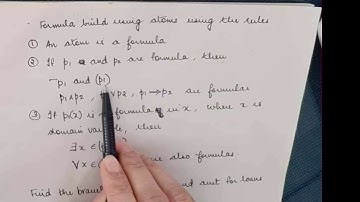 Formula build using atoms using the rules
① An atom is a formula
② If p1 and p2 are formula, then
¬p1 and (p1)
p1∧p2, ∨p2, p1→p2 are formulas
③ If p1(x) is formula in x, where x is
domain variable, then
∃x ∈
∀x ∈ are also formulas
Find the and amt for loans